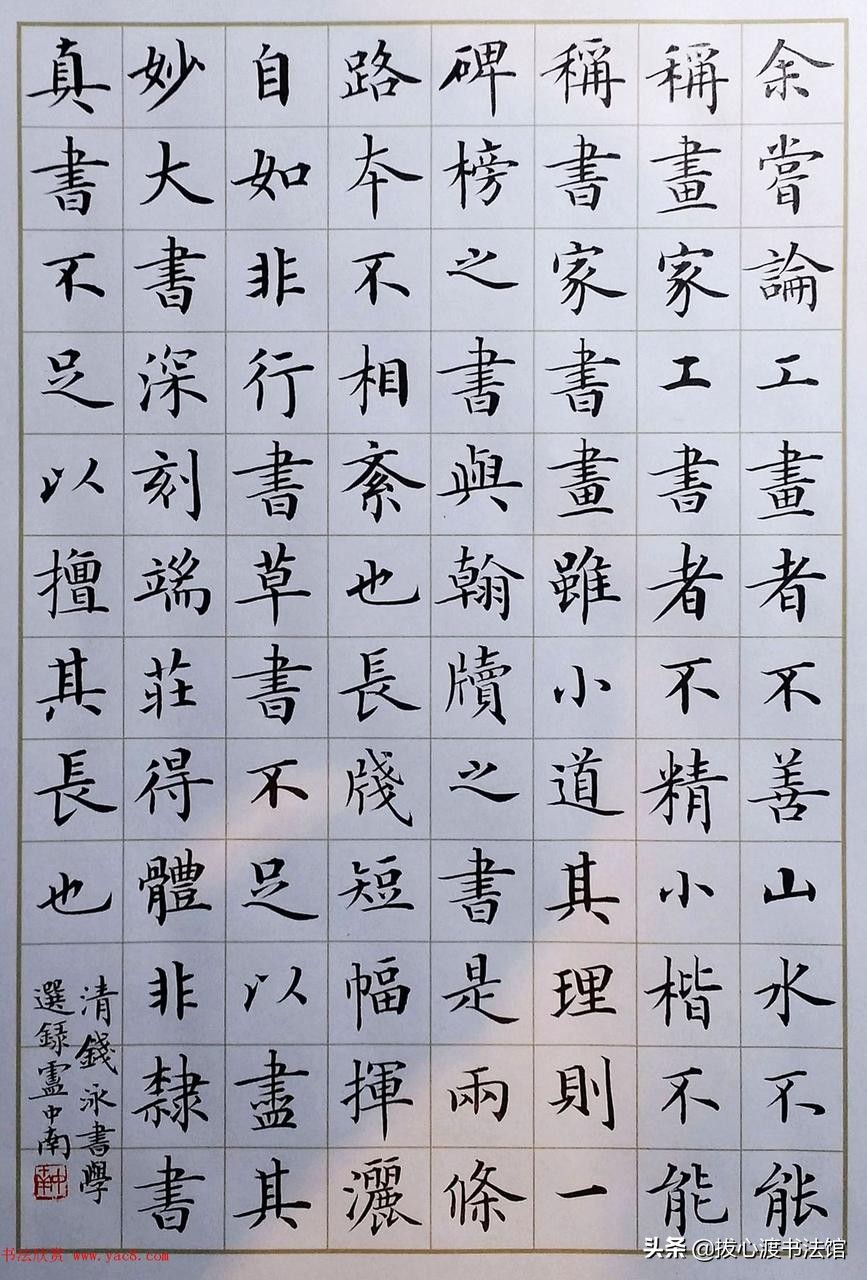 余嘗論工畫者不善山水不能
稱畫家工書者不精小楷不能
稱書家書畫雖小道其理則一
碑榜之書與翰牘之書是兩條
路本不相紊也長牋短幅揮灑
自如非行書草書不足以盡其
妙大書深刻端莊得體非隸書
真書不足以擅其長也
清錢泳書學
選録盧中南
书法欣赏 www.yac8.com
头条 @拔心渡书法馆